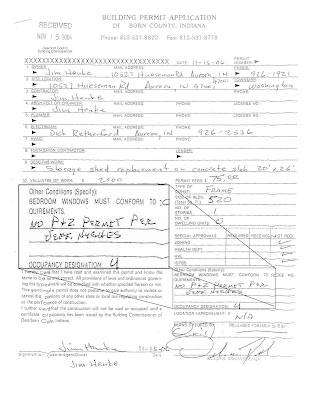 BUILDING PERMIT APPLICATION
RECEIVED
NOV 15 2006
BORN COUNTY, INDIANA
Phone: 812-537-8822 Fax: 812-537-8778
Dearborn County
Building Commissioner
DATE 11-15-06
PERMIT NUMBER
1. OWNER MAIL ADDRESS PHONE
Jim Henke 10527 Hueseman Rd Aurora, IN 926-1921
2. SITE LOCATION
10527 Hueseman Rd Aurora, IN Washington
3. CONTRACTOR MAIL ADDRESS PHONE
Jim Henke
4. ARCHITECT OR ENGINEER MAIL ADDRESS PHONE LICENSE NO.
Jim Henke
5. PLUMBER MAIL ADDRESS PHONE LICENSE NO.
6. ELECTRICIAN MAIL ADDRESS PHONE
Dick Retherford Aurora, IN 926-2536
7. HVAC MAIL ADDRESS PHONE
8. FOUNDATION CONTRACTOR MAIL ADDRESS PHONE
9. DESCRIBE WORK
Storage shed replacement on concrete slab 20'x26'
10. VALUATION OF WORK $ 2500
PERMIT FEES $ 75.00
Other Conditions (Specify):
BEDROOM WINDOWS MUST CONFORM TO
QUIREMENTS.
NO P&Z PERMIT PER
JEFF HUGHES
OCCUPANCY DESIGNATION U
TYPE OF CONST. FRAME
SIZE OF BLDG. (Total Sq. Ft.) 520
NO. OF STORIES 1
NO. OF DWELLING UNITS 0
SPECIAL APPROVALS REQUIRED RECEIVED NOT REQ.
ZONING
HEALTH DEPT.
Other Conditions (Specify):
BEDROOM WINDOWS MUST CONFORM TO
QUIREMENTS.
NO P&Z PERMIT PER
JEFF HUGHES
OCCUPANCY DESIGNATION U
LOCATION IMPROVEMENT # N/A
I hereby certify that I have read and examined the permit and know the
same to be true and correct. All provisions of laws and ordinances govern-
ing this type work will be complied with whether specified herein or not.
The granting of a permit does not presume to give authority to violate or
cancel the provisions of any other state or local law regulating construction
or the performance of construction.
I further certify that the construction will not be used or occupied until a
certificate of occupancy has been issued by the Building Commissioner of
Dearborn County, Indiana.
Jim Henke 11-15-06
Jim Henke